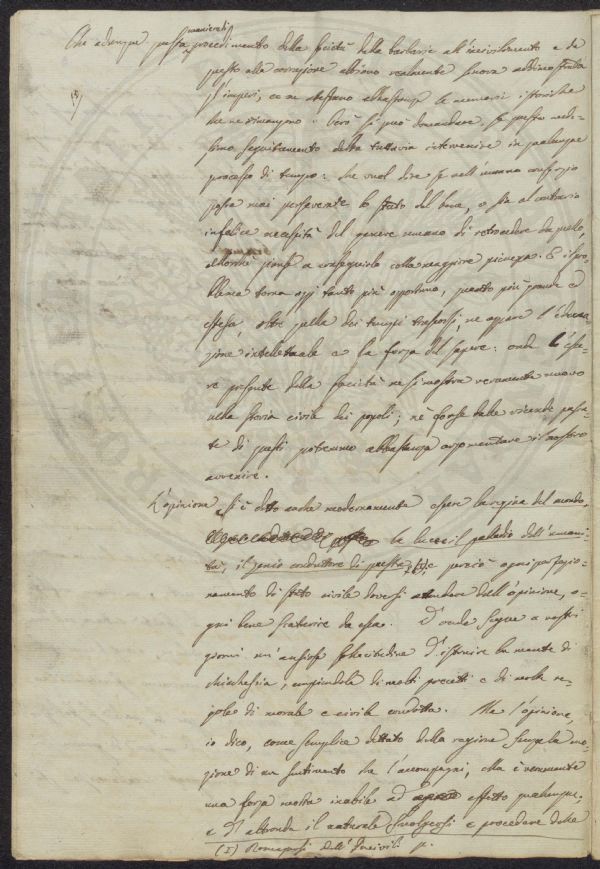 maniera di
Che adunque questa procedimento della società dalla barbarie all'incivilimento e da
questo alla corruzione abbiano realmente finora addimostrato
(5)
gl'imperi, ce ne attestano abbastanza le memorie istoriche
che ne rimangono. Però si può domandare, se questo mede-
simo seguitamento debba tuttavia intervenire in qualunque
processo di tempo: che vuol dire se nell'umano consorzio
possa mai perseverare lo stato del bene, o sia al contrario
infelice necessità del genere umano di retrocedere da quello,
allorché giunse a conseguirlo colla maggiore pienezza. E il pro-
blema torna oggi tanto più opportuno, quanto più grande ed
estesa, oltre quella dei tempi trascorsi, ne appare l'educa-
zione intellettuale e la forza del sapere: onde l'esse-
re presente della società ne si mostra veramente nuovo
nella storia civile dei popoli; nè forse dalle vicende passa-
te di questi potremmo abbastanza argomentare il nostro
avvenire.
L'opinione si è detto anche modernamente essere la regina del mondo,
la luce e il palladio dell'umani-
tà, il genio conduttore di questa (5), e perciò ogni perfezio-
namento di stato civile doversi attendere dall'opinione, o-
gni bene scaturire da essa. D'onde segue a nostri
giorni un'ansiosa sollecitudine d'istruire la mente di
chicchessia, empiendola di molti precetti e di molte re-
gole di morale e civile condotta. Ma l'opinione,
io dico, come semplice dettato della ragione senza la mo-
zione di un sentimento che l'accompagni, ella è veramente
una forza molto inabile ad effetto qualunque;
e d'altronde il naturale svolgersi e procedere delle
(5) Romagnosi Dell'Incivili p.